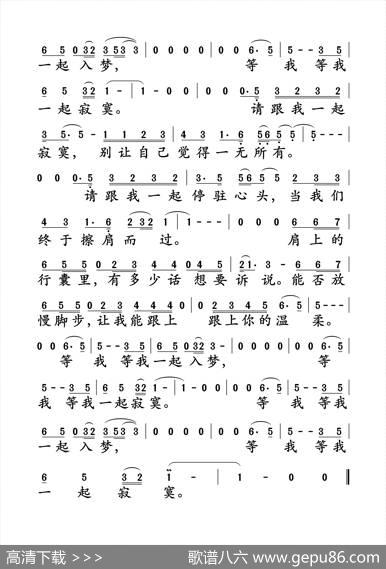 6 5 0 3 2 3 5 3 5 3 | 0 0 0 0 | 0 0 6· 5 | 5 - - 3 5 |
一起入梦， 等 我 等我
6 5 6 3 2 1 | 1 - 0 0 | 0 0 0·5 | 3 2 3 2
一起寂寞。 请跟我一起
3 5· 5 - | 1 1 2 3 | 4 3 1·6 6 6 5 5 | 5 - - 0 |
寂寞， 别让自己觉得一无所有。
0 0 0·5 | 3 2 3 2 3· 5 | 5 6 5 5 2 3
请跟我一起停驻心头，当我们
4 3 1·6 2 3 2 1 | 1 - 0 0 | 0 0 6 6 7
终于擦肩而 过。 肩上的
6 5 5 0 2 3 4 3 4 4 5 4 5 | 2 1· 3 - | 0 6 6 7
行囊里，有多少话想要诉说。能否放
6 5 5 0 2 3 4 4 4 0 | 4 4 0 5 5 6· 5 | 5 - - 0 |
慢脚步，让我能跟上 跟上你的温 柔。
0 0 6 5 | 5 - - 3 5 | 6 5 0 3 2 3 | 3 - 0 0 | 0 0 6· 5 |
等 我 等我一起入梦， 等
5 - - 3 5 | 6 5 3 2 1 | 1 - 0 0 | 0 0 6· 5 | 5 - - 3 5 |
我 等我一起寂寞。 等 我 等我
6 5 0 3 2 3 5 3 5 3 | 0 0 0 0 | 0 0 6· 5 | 5 - - 3 5 |
一起入梦， 等 我 等我
6 5 3 2 1 - | 1 - 0 0 ‖
一 起 寂 寞。
高清下载 >>>
歌谱八六 www.gepu86.com